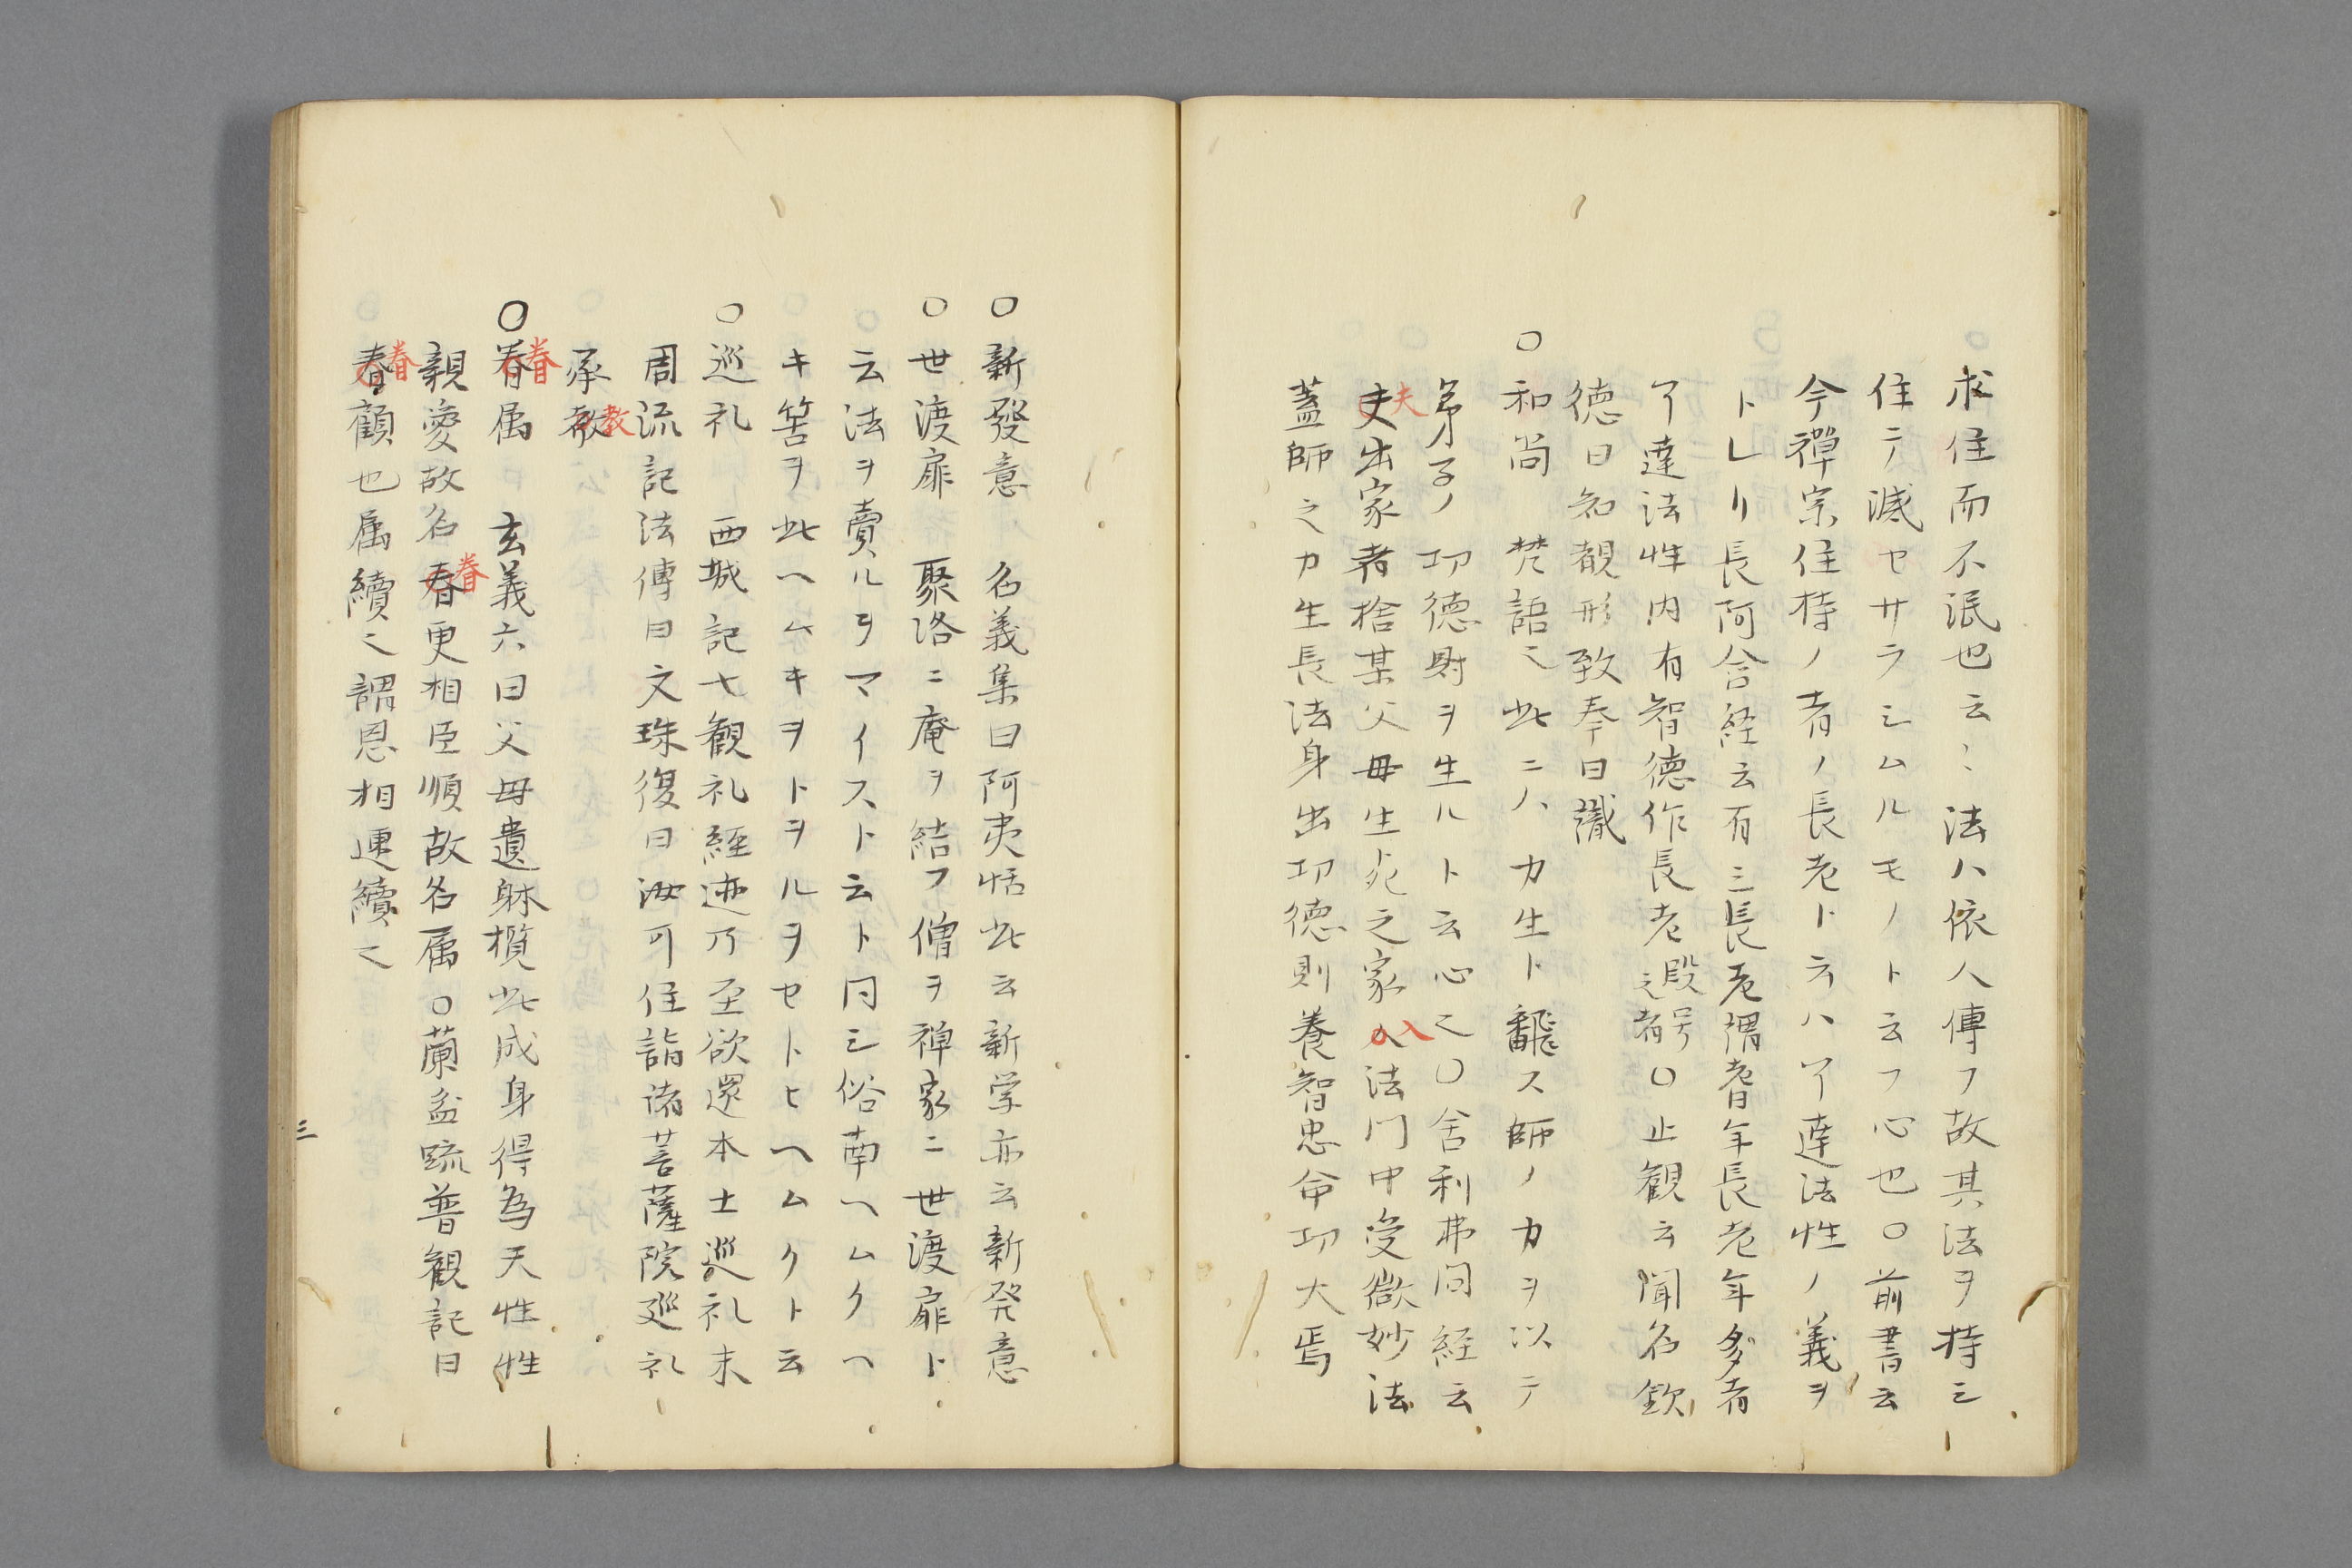 求住而不泯也云〻法ハ依人傳フ故其法ヲ持シ
住テ滅セサラシムルモノト云フ心也○前書云
今禪宗住持ノ者ノ長老ト云ハ了達法性ノ義ヲ
トレリ長阿含経云有三長老謂耆年長老年多者
了達法性内有智德作長老叚号之者○止観云聞名欽
德曰知覩形致奉曰識
○和尚 梵語之此ニハ力生ト飜ス師ノ力ヲ以テ
弟子ノ功德財ヲ生ルト云心之○舍利弗問経云
夫夫出家者捨某父母生死之家入入法門中受微妙法
蓋師之力生長法身出功德財養智忠命功大焉
○新發意 名義集曰阿夷恬此云新学亦云新発意
○世渡扉 聚洛ニ庵ヲ結フ僧ヲ禅家ニ世渡扉ト
云法ヲ賣ルヲマイスト云ト同シ俗南ヘムクヘ
キ筈ヲ此ヘムキヲトヲルヲセトヒヘムクト云
○巡礼 西域記七観礼経迹乃至欲還本土巡礼末
周流記法傳曰文珠復曰汝可住詣諸菩薩院廵礼
承教教
○眷眷属 玄義六曰父母遺躰攬此成身得為天性性
親愛故名眷眷更相臣順故名属○蘭盆疏普観記曰
眷眷顧也属續之謂恩相連續之
三